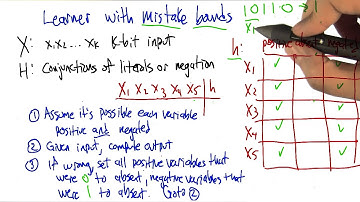 Learner with mistake bands
X: X1X2 ... XK K-bit input
H: Conjunctions of literals or negation
X1 X2 X3 X4 X5 | h
① Assume it's possible each variable
positive and negated
② Given input, compute output
③ if wrong, set all positive variables that
were 0 to absent, negative variables that
were 1 to absent. Goto ②
10110
X1
h: positive absent
X1 ✓ ✓
X2 ✓ ✓
X3 ✓ ✓
X4 ✓ ✓
X5 ✓ ✓